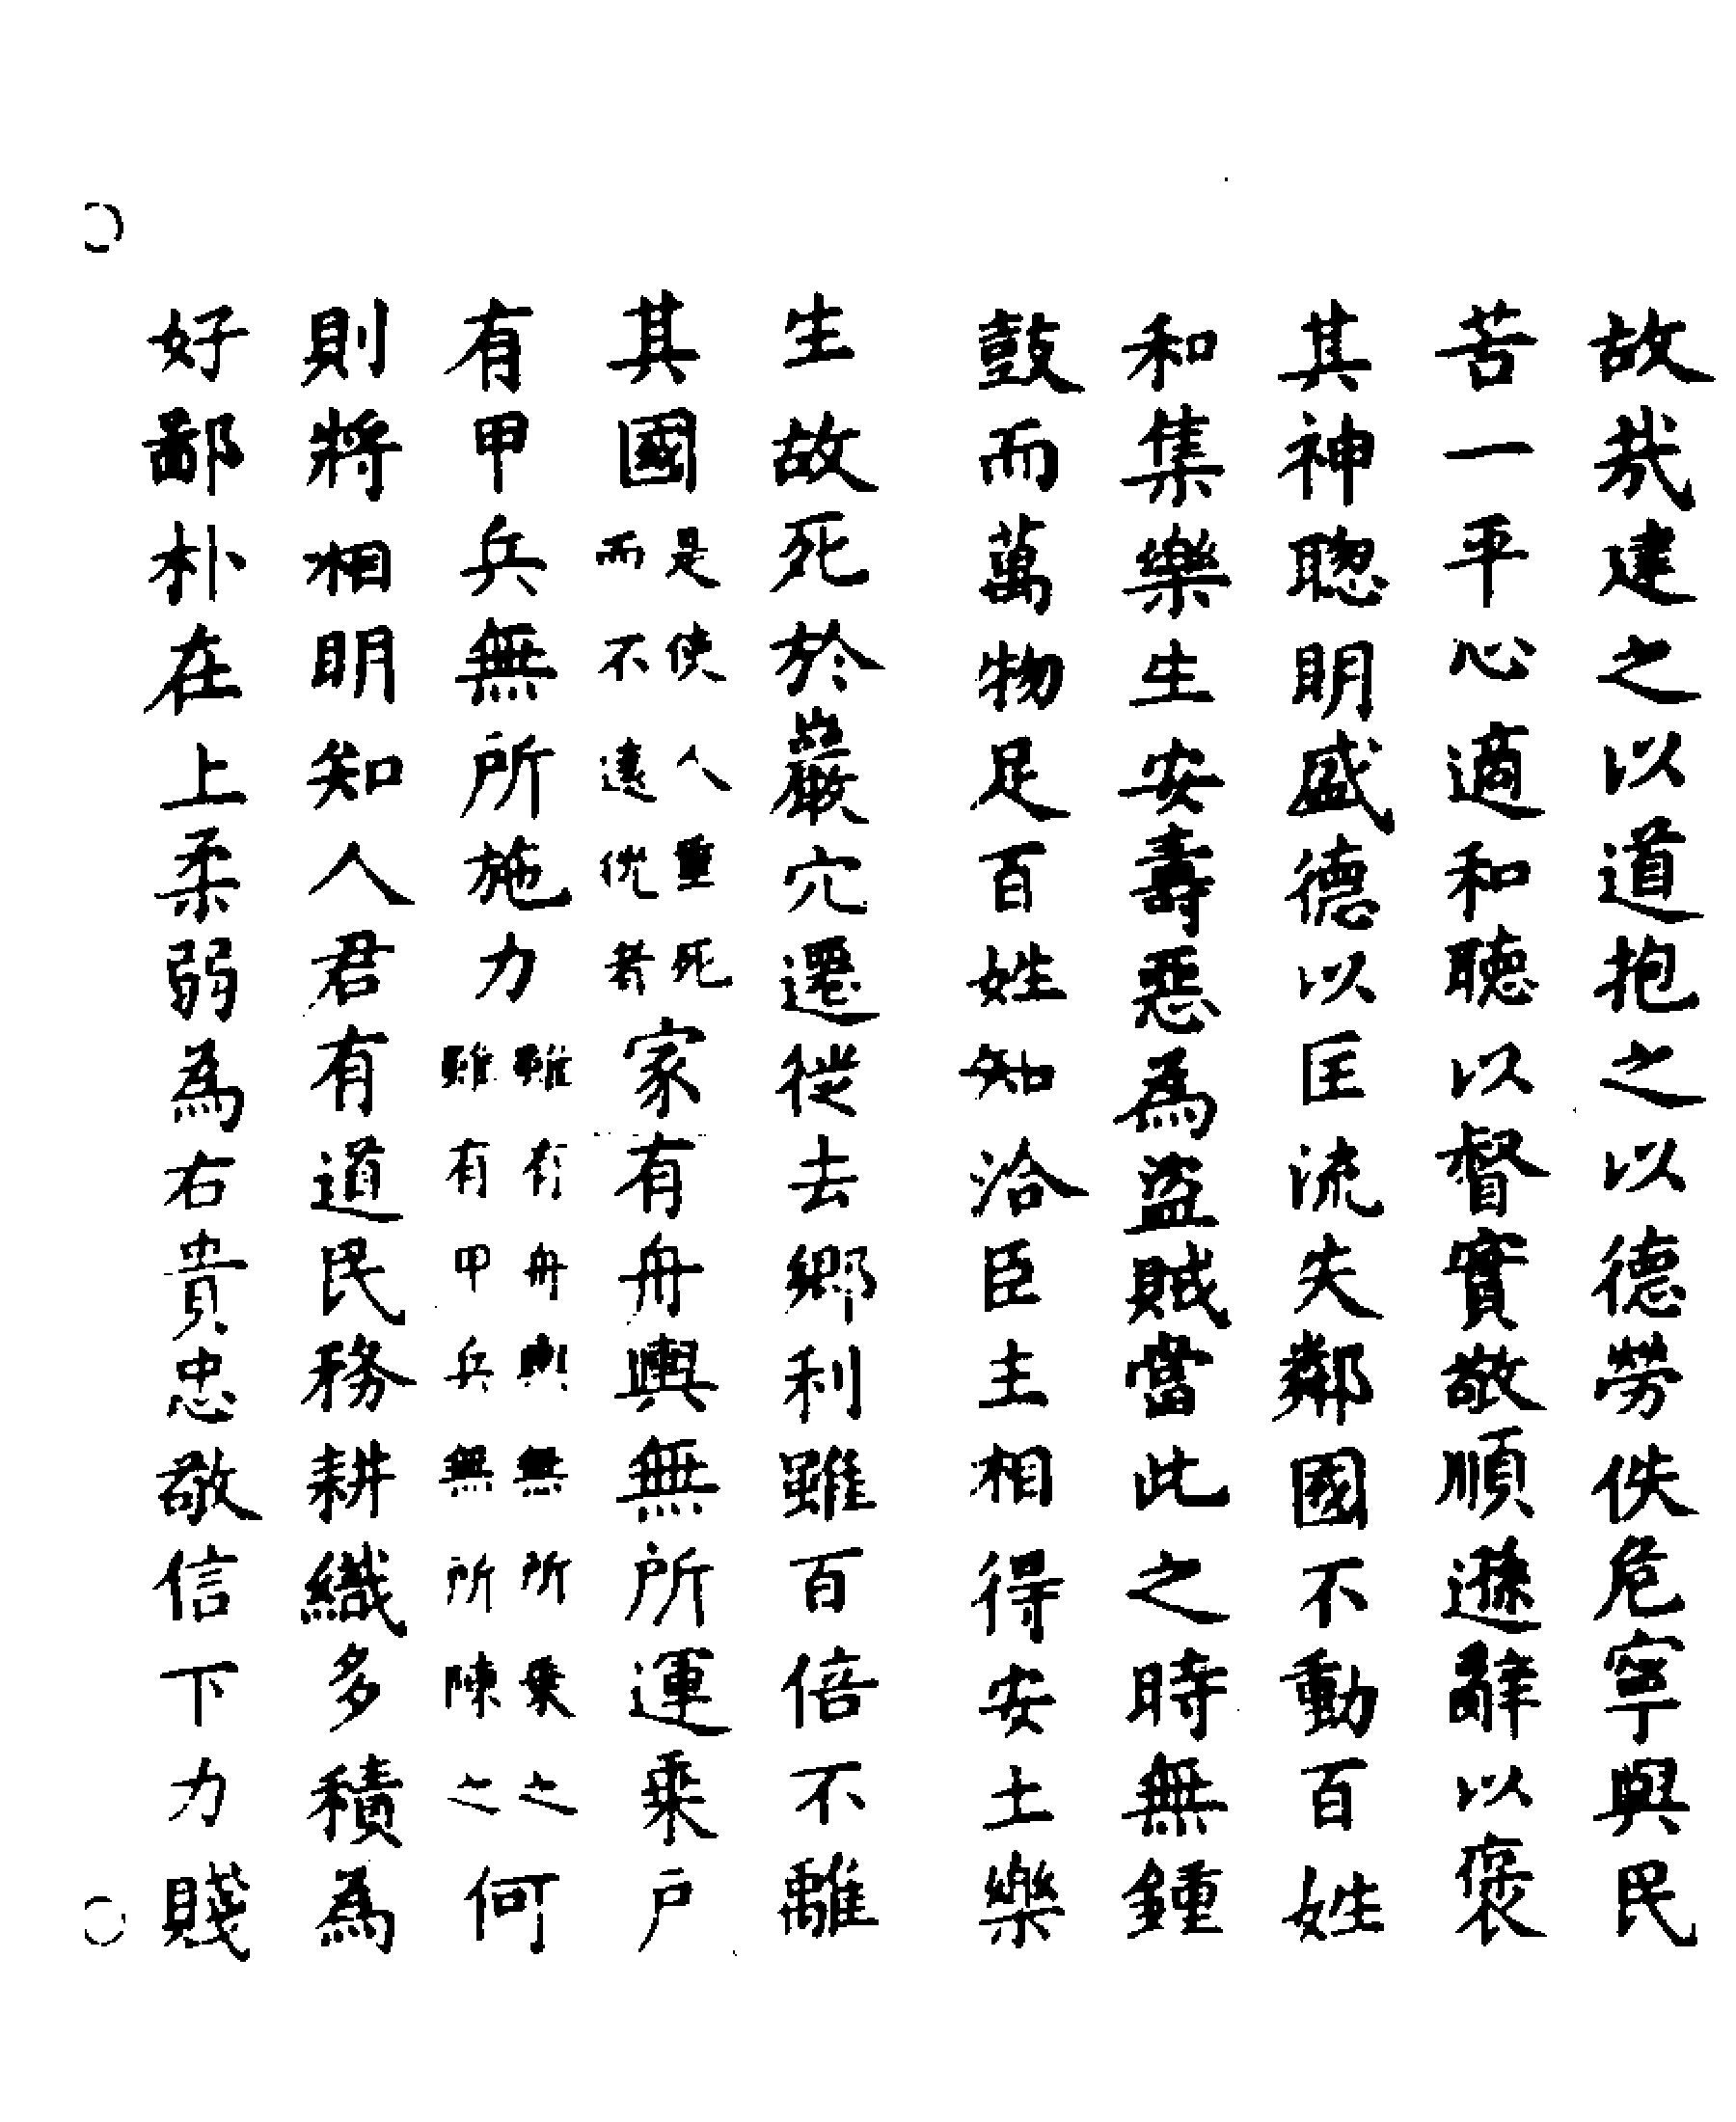 故哉建之以道抱之以德勞佚危寧與民
苦一平心適和聽以督實敬順遜辭以褒
其神聦明盛德以匡流失鄰國不動百姓
和集樂生安壽惡為盜賊當此之時無鍾
鼓而萬物足百姓知洽臣主相得安土樂
生故死於巖穴遷徙去鄉利雖百倍不離
其國是使人重死而不遠徙者家有舟輿無所運乘戶
有甲兵無所施力雖有舟輿無所乘之雖有甲兵無所陳之何
則將相明知人君有道民務耕織多積為
好鄙朴在上柔弱為右貴忠敬信下力賤